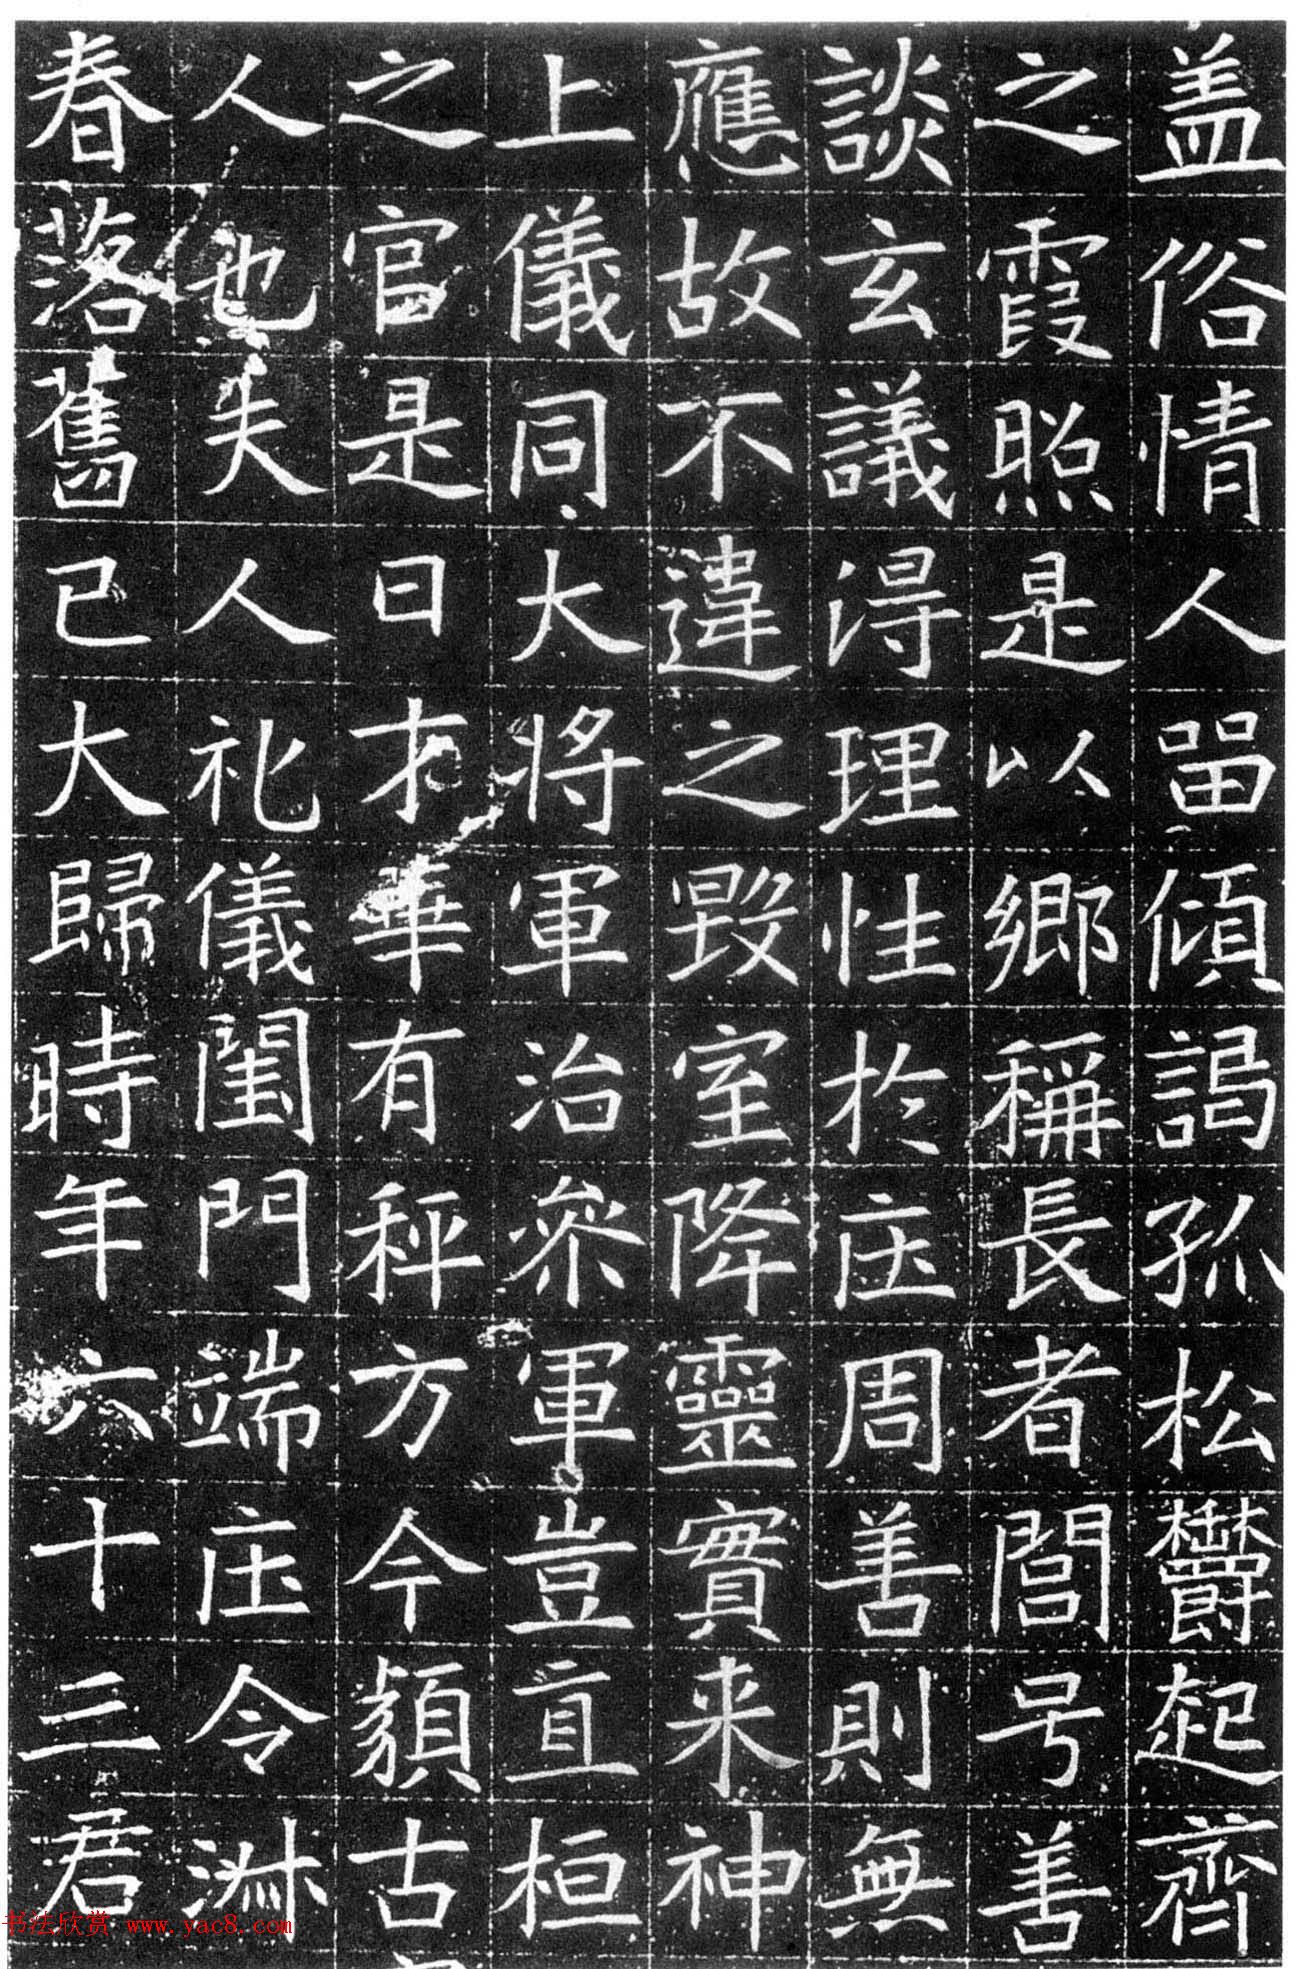 盖俗情人畱傾謁孤松欝起齊
之霞照是以鄉稱長者閭号善
談玄議淂理性扵庄周善則無
應故不違之毀室降靈實来神
上儀同大將軍治叅軍豈直桓
之官是日才華有秤方今顡古
人也夫人礼儀閨門端庄令淋
春落舊已大歸時年六十三君
书法欣赏 www.yac8.com